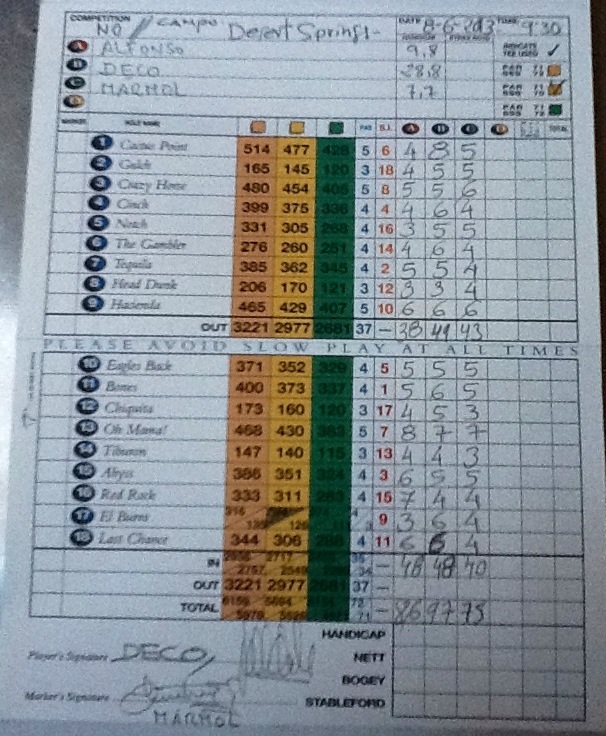 COMPETITION NO / CAMPO Desert Springs- DATE 8-6-2013 TIME 9.30
A ALFONSO 9,8 INDICATE TEE USED ✓
B DECO 28,8 PAR SSS
C MARMOL 7,7 PAR SSS
D PAR 71 SSS
MARKER HOLE NAME PAR S.I. A B C D TOTAL
1 Cactus Point 514 477 428 5 6 4 8 5
2 Gulch 165 145 120 3 18 4 5 5
3 Crazy Horse 480 454 405 5 8 5 5 6
4 Cinch 399 375 336 4 4 4 6 4
5 Notch 331 305 268 4 16 3 5 5
6 The Gambler 276 260 251 4 14 4 6 4
7 Tequila 385 362 345 4 2 5 5 4
8 Head Dunk 206 170 121 3 12 3 3 4
9 Hasienda 465 429 407 5 10 6 6 6
OUT 3221 2977 2681 37 – 38 49 43
PLEASE AVOID SLOW PLAY AT ALL TIMES
10 Eagles Back 371 352 329 4 5 5 5 5
11 Bones 400 373 337 4 1 5 6 5
12 Chiquita 173 160 120 3 17 4 5 3
13 Oh Mama! 468 430 383 5 7 8 7 7
14 Tiburon 147 140 115 3 13 4 4 3
15 Abyss 386 351 324 4 3 6 5 5
16 Red Rock 333 311 283 4 15 7 4 4
17 El Burro 9 3 6 4
18 Last Chance 344 306 288 4 11 6 6 4
IN – 48 48 40
OUT 3221 2977 2681 37 –
TOTAL – 86 97 75
HANDICAP
Player's Signature DECO, NETT
BOGEY
Marker's Signature STABLEFORD
MARMOL